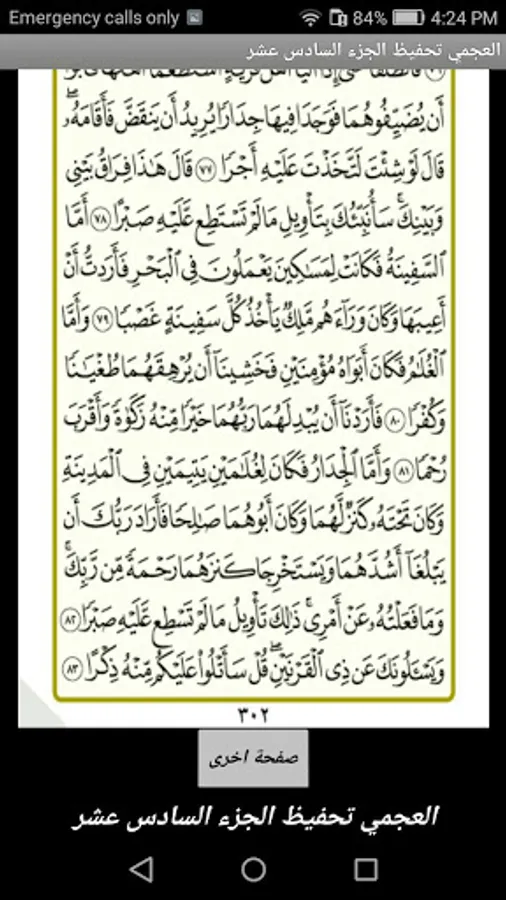 Emergency calls only 84% 4:24 PM
العجمي تحفيظ الجزء السادس عشر
أَن يُضَيِّفُوهُمَا فَوَجَدَا فِيهَا جِدَارًا يُرِيدُ أَن يَنقَضَّ فَأَقَامَهُۥۖ
قَالَ لَوْ شِئْتَ لَتَّخَذْتَ عَلَيْهِ أَجْرًا ٧٧ قَالَ هَٰذَا فِرَاقُ بَيْنِى
وَبَيْنِكَۚ سَأُنَبِّئُكَ بِتَأْوِيلِ مَا لَمْ تَسْتَطِع عَّلَيْهِ صَبْرًا ٧٨ أَمَّا
السَّفِينَةُ فَكَانَتْ لِمَسَٰكِينَ يَعْمَلُونَ فِى الْبَحْرِ فَأَرَدتُّ أَنْ
أَعِيبَهَا وَكَانَ وَرَآءَهُم مَّلِكٌ يَأْخُذُ كُلَّ سَفِينَةٍ غَصْبًا ٧٩ وَأَمَّا
الْغُلَٰمُ فَكَانَ أَبَوَاهُ مُؤْمِنَيْنِ فَخَشِينَآ أَن يُرْهِقَهُمَا طُغْيَٰنًا
وَكُفْرًا ٨٠ فَأَرَدْنَآ أَن يُبْدِلَهُمَا رَبُّهُمَا خَيْرًا مِّنْهُ زَكَوٰةً وَأَقْرَبَ
رُحْمًا ٨١ وَأَمَّا الْجِدَارُ فَكَانَ لِغُلَٰمَيْنِ يَتِيمَيْنِ فِى الْمَدِينَةِ
وَكَانَ تَحْتَهُۥ كَنزٌ لَّهُمَا وَكَانَ أَبُوهُمَا صَٰلِحًا فَأَرَادَ رَبُّكَ أَن
يَبْلُغَآ أَشُدَّهُمَا وَيَسْتَخْرِجَا كَنزَهُمَا رَحْمَةً مِّن رَّبِّكَۚ
وَمَا فَعَلْتُهُۥ عَنْ أَمْرِىۚ ذَٰلِكَ تَأْوِيلُ مَا لَمْ تَسْطِع عَّلَيْهِ صَبْرًا ٨٢
وَيَسْـَٔلُونَكَ عَن ذِى الْقَرْنَيْنِۖ قُلْ سَأَتْلُوا۟ عَلَيْكُم مِّنْهُ ذِكْرًا ٨٣
٣٠٢
صفحة اخرى
العجمي تحفيظ الجزء السادس عشر